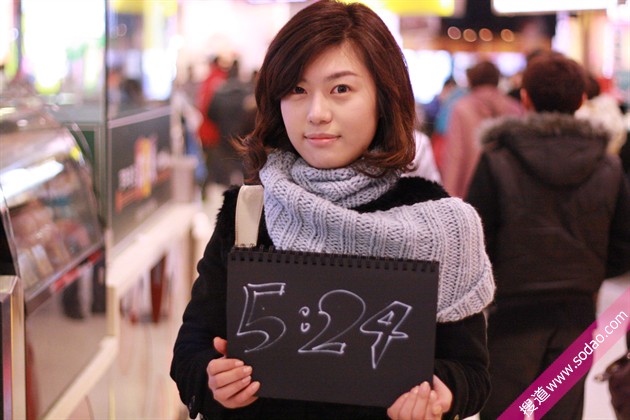 5:24
搜道 www.sodao.com